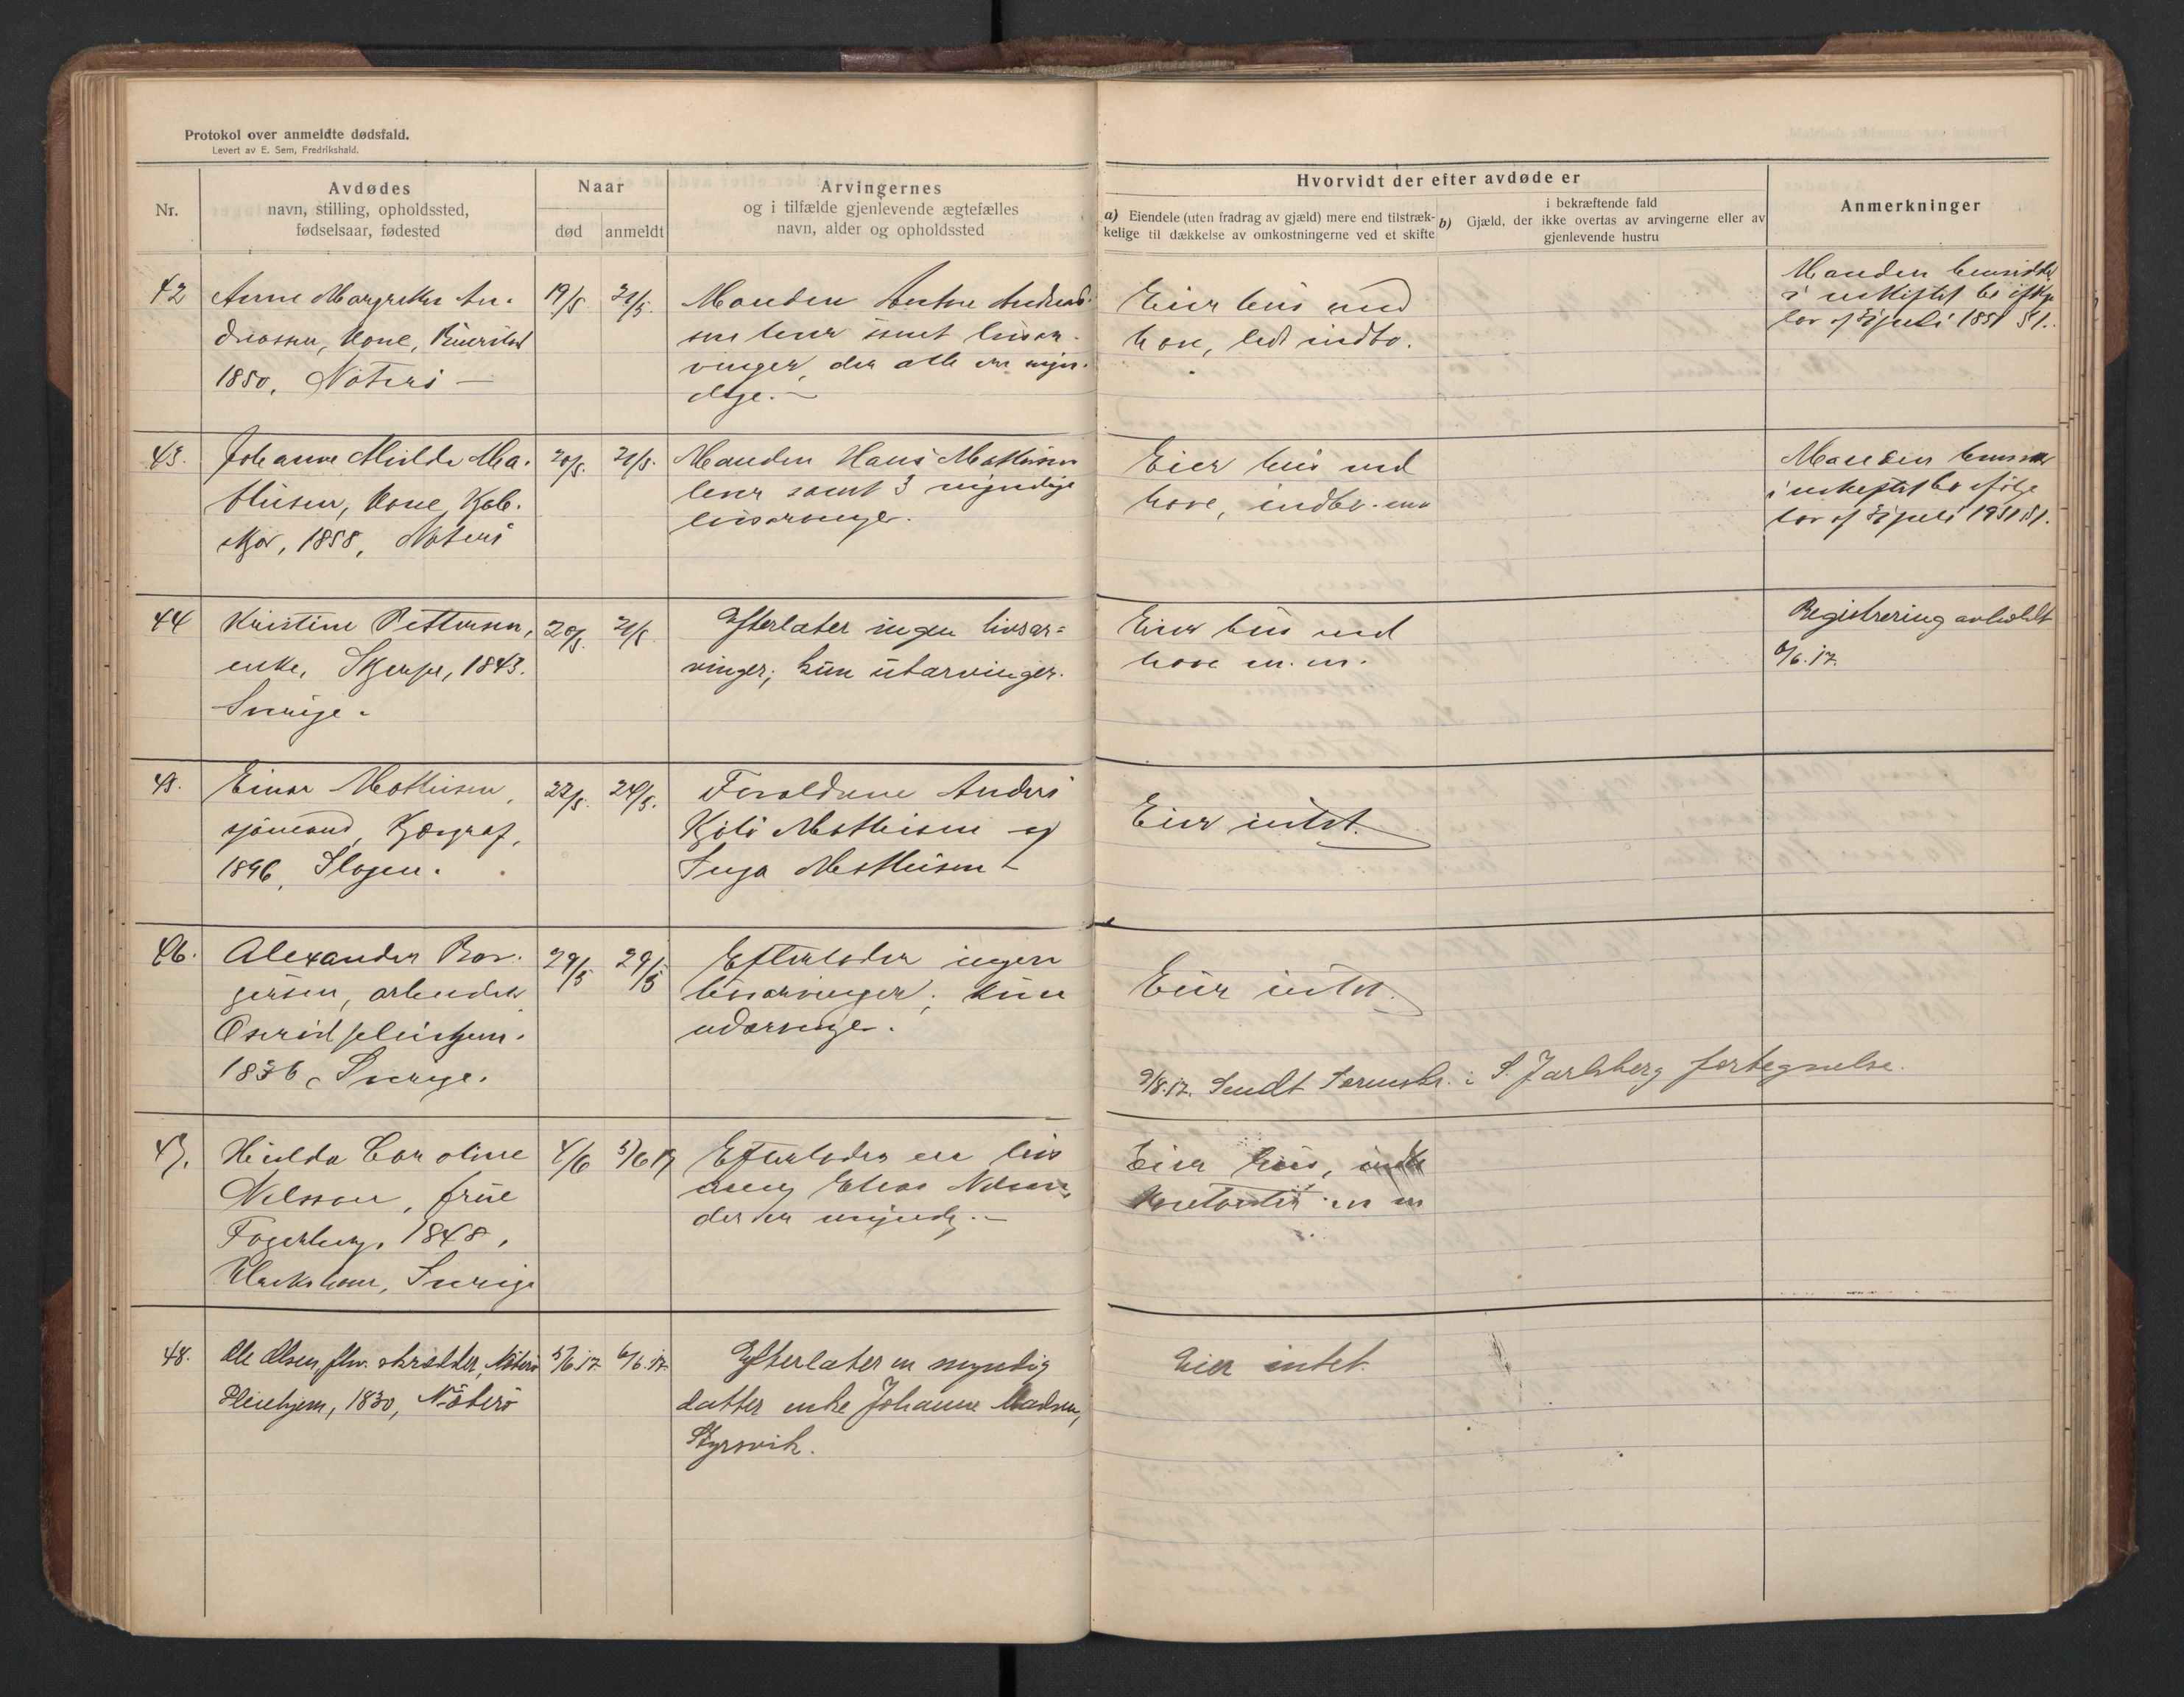 Protokol over anmeldte dødsfald.
Levert av E. Sem, Fredrikshald.
Nr.
Avdødes
navn, stilling, opholdssted,
fødselsaar, fødested
Naar
død
anmeldt
Arvingernes
og i tilfælde gjenlevende ægtefælles
navn, alder og opholdssted
Hvorvidt der efter avdøde er
a) Eiendele (uten fradrag av gjæld) mere end tilstræk-
kelige til dækkelse av omkostningerne ved et skifte
i bekræftende fald
b) Gjæld, der ikke overtas av arvingerne eller av
gjenlevende hustru
Anmerkninger
42
Anne Margrethe An-
dreassen, kone,
1850, Nøterö —
19/5
21/5
Manden Anton Andreas-
sen lever samt livsar-
vinger, der alle er myn-
dige. —
Eier hus med
have, lidt indbo.
Manden hensidder
i uskiftet bo ifølge
lov af 31 juli 1851 § 1.
43.
Johanne Mathilde Ma-
thisen, kone,
1858, Nøterö
20/5.
21/5.
Manden Hans Mathisen
lever samt 3 myndige
livsarvinger.
Eier hus med
have, indbo. mm
Manden
i uskiftet bo ifølge
lov af 31 juli 1951 § 1.
44
Kristine Pettersen,
enke, 1843.
Sverige.
20/5.
21/5
Efterlater ingen livsar-
vinger; kun utarvinger.
Eier hus med
have m. m.
Registrering avholdt
6/6. 17.
45.
Einar Mathisen,
sjömand,
1896, Slagen.
22/5.
24/5.
Foreldrene Anders
Mathisen og
Inga Mathisen
Eier intet.
46.
Alexander Bor-
gersen, arbeider
pleiehjem.
1836, Sverige.
29/5
29/5
Efterlader ingen
livsarvinger; kun
udarvinger.
Eier intet.
9/8.17. Sendt Sorenskr. i S. Jarlsberg fortegnelse.
47.
Hulda Caroline
Nilsson, frue
1848,
Sverige
4/6
5/6 17
Efterlader en livs
arving Nilsson,
der er myndig. —
Eier hus,
m m
48.
Ole Olsen, fhv. skredder, Nöterö
Pleiehjem, 1830, Nöterö
5/6.17.
6/6.17.
Efterlater en myndig
datter enke Johanne Madsen,
Styrsvik.
Eier intet.